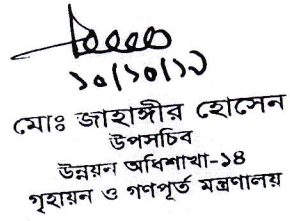 ১০/১০/১৯
মোঃ জাহাঙ্গীর হোসেন
উপসচিব
উন্নয়ন অধিশাখা-১৪
গৃহায়ন ও গণপূর্ত মন্ত্রণালয়